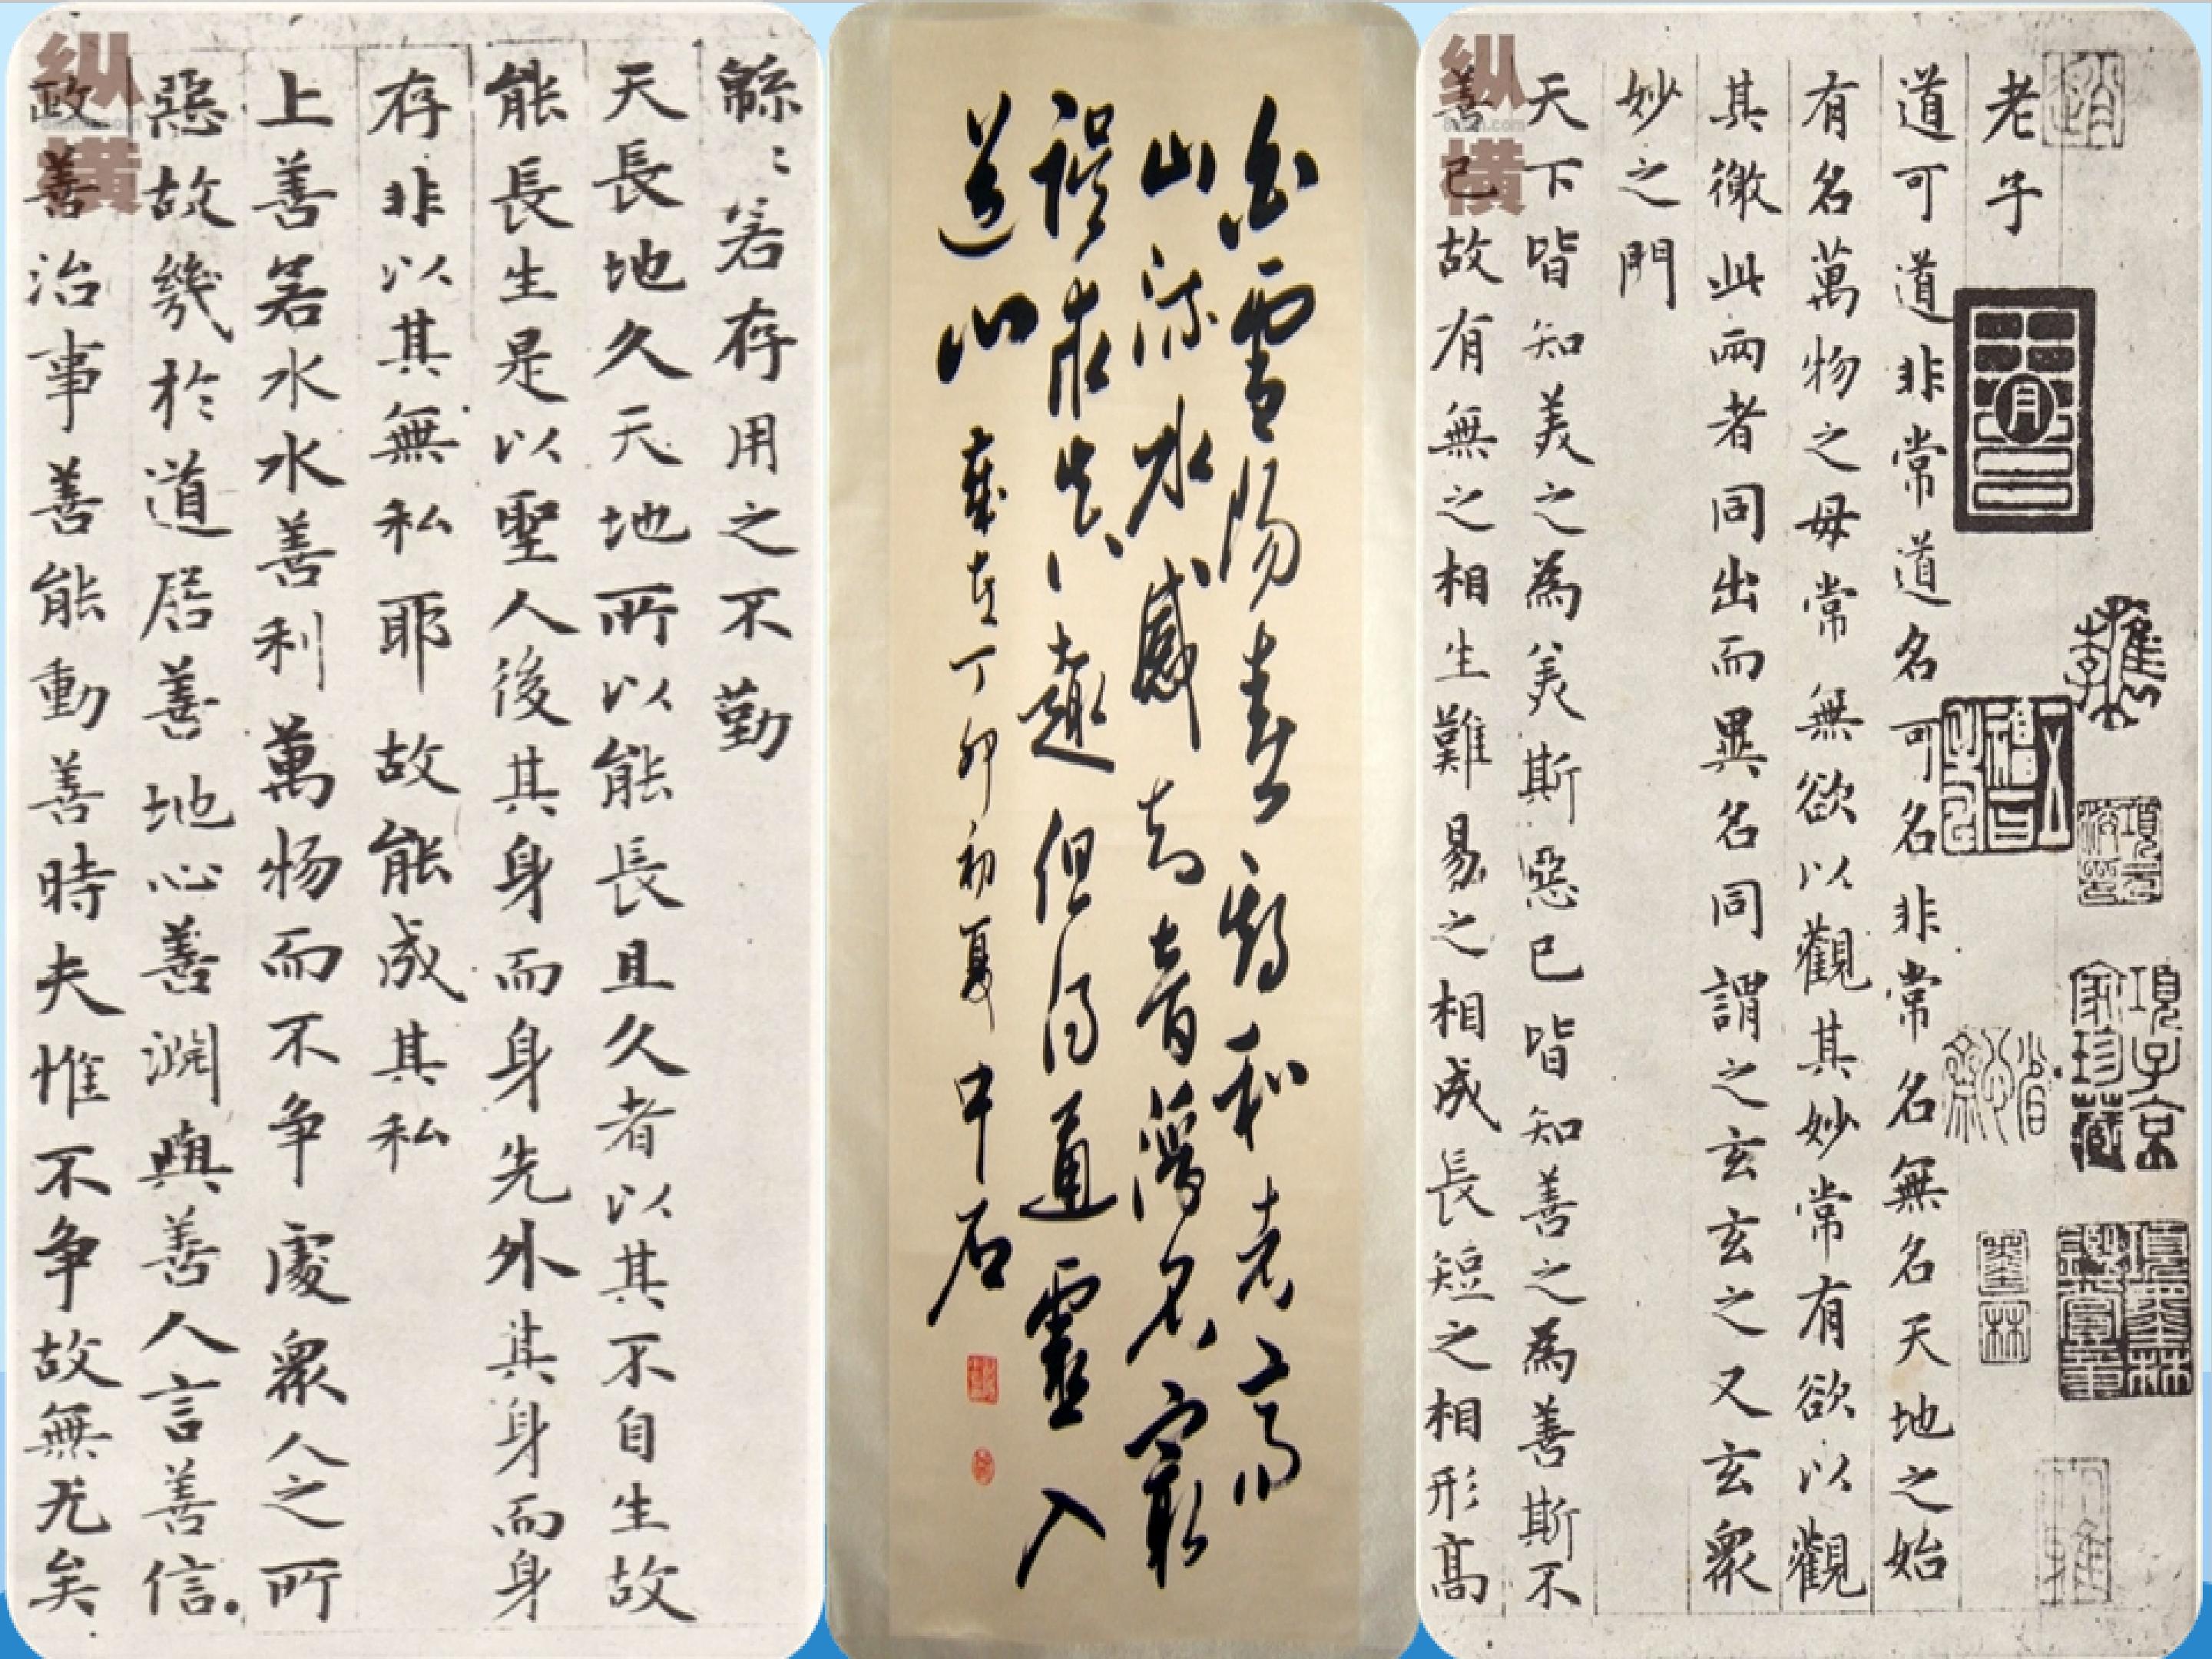 老子
道可道非常道名可名非常名無名天地之始
有名萬物之母常無欲以觀其妙常有欲以觀
其徼此兩者同出而異名同謂之玄玄之又玄眾
妙之門
天下皆知美之為美斯惡已皆知善之為善斯不
善已故有無之相生難易之相成長短之相形高
項子京家珍藏
纵横
白雪陽春
山流水感知音
求 趣但得通靈入
道心 丁卯初夏中石
緜〻若存用之不勤
天長地久天地所以能長且久者以其不自生故
能長生是以聖人後其身而身先外其身而身
存非以其無私耶故能成其私
上善若水水善利萬物而不爭處眾人之所
惡故幾於道居善地心善淵與善人言善信
政善治事善能動善時夫惟不爭故無尤矣
纵横